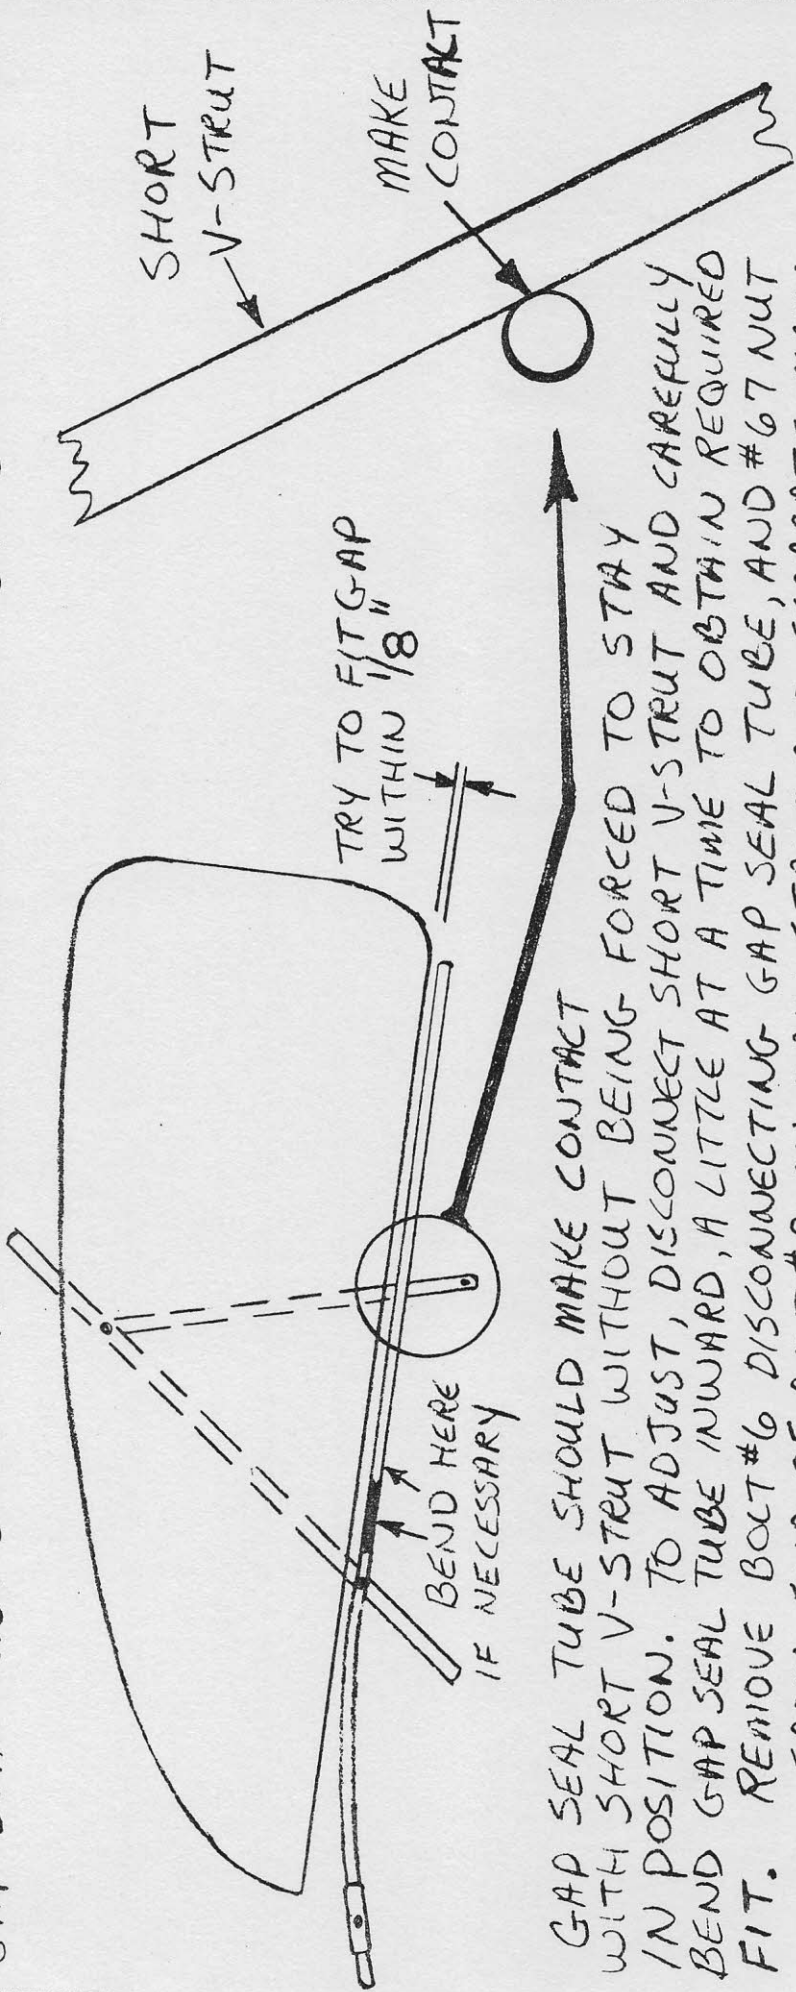 SHORT
V-STRUT
MAKE
CONTACT
TRY TO FIT GAP
WITHIN 1/8"
BEND HERE
IF NECESSARY
GAP SEAL TUBE SHOULD MAKE CONTACT
WITH SHORT V-STRUT WITHOUT BEING FORCED TO STAY
IN POSITION. TO ADJUST, DISCONNECT SHORT V-STRUT AND CAREFULLY
BEND GAP SEAL TUBE INWARD, A LITTLE AT A TIME TO OBTAIN REQUIRED
FIT. REMOVE BOLT #6 DISCONNECTING GAP SEAL TUBE, AND #67 NUT